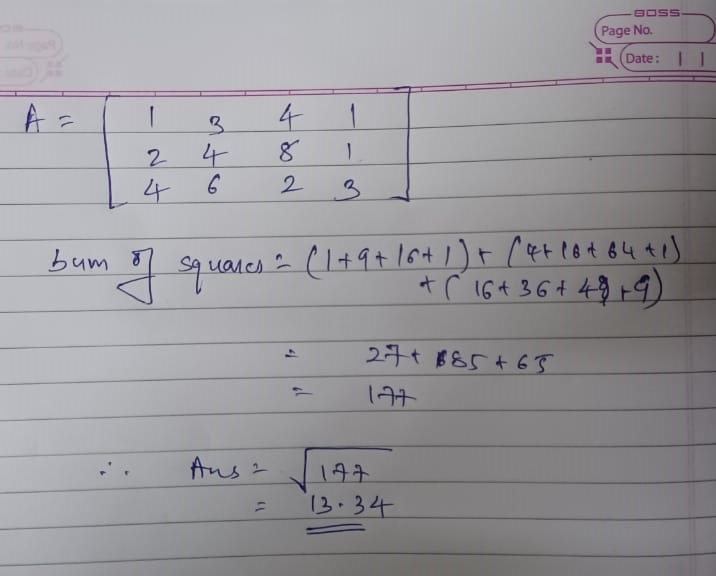 BOSS
Page No.
Date :
A = [ 1 3 4 1
2 4 8 1
4 6 2 3 ]
Sum of squares = (1+9+16+1) + (4+16+64+1)
+ ( 16+36+4+9)
= 27+85+65
= 177
∴ Ans = √177
= 13.34